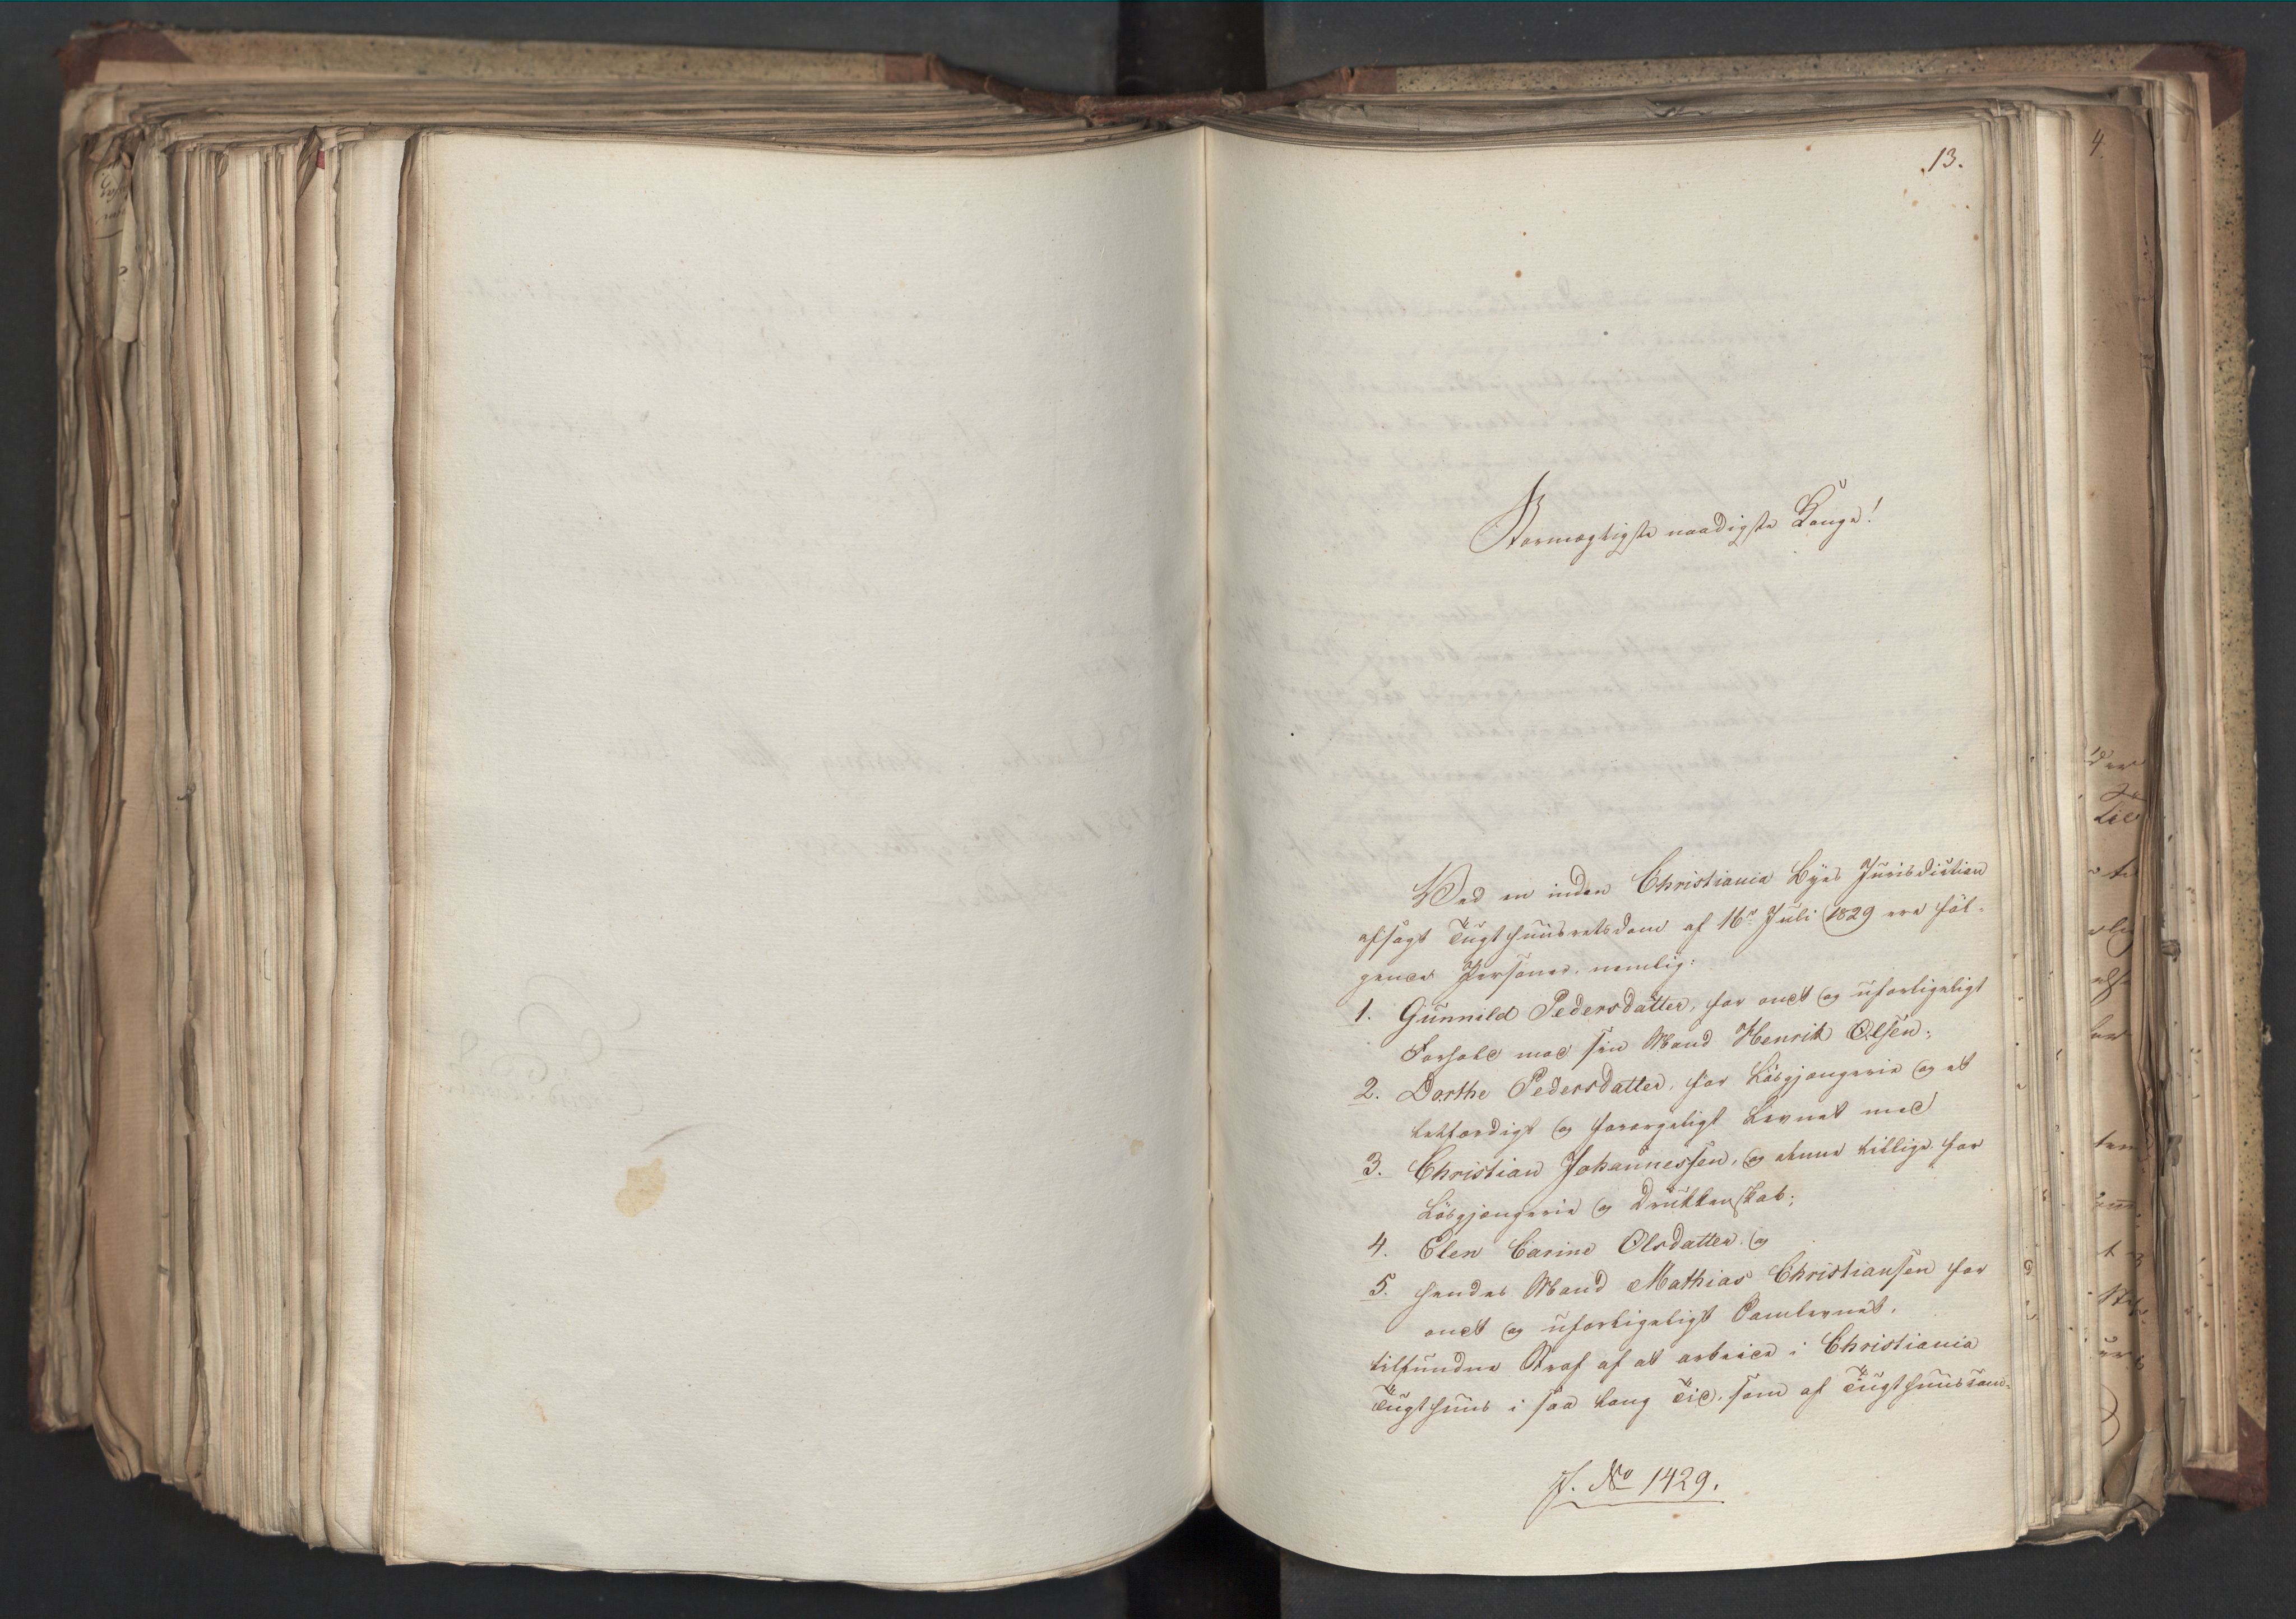 13.
Stormægtigste naadigste Konge!
Ved en inden Christiania Byes Jurisdiction
afsagt Tugthuusretsdom af 16de Juli 1829 ere føl-
gende Personer, nemlig:
1. Gunnild Pedersdatter, for ondt og uforligeligt
Forhold mod sin Mand Henrik Olsen;
2. Dorthe Pedersdatter, for Løsgjængerie og et
letfærdigt og forargeligt Levnet med
3. Christian Johannessen, og denne tillige for
Løsgjængerie og Drukkenskab;
4. Elen Carine Olsdatter og
5. hendes Mand Mathias Christiansen for
ondt og uforligeligt Samlevnet,
tilfundne Straf af at arbeide i Christiania
Tugthuus i saa lang Tid, som af Tugthuuscom-
J. No 1429.
4.